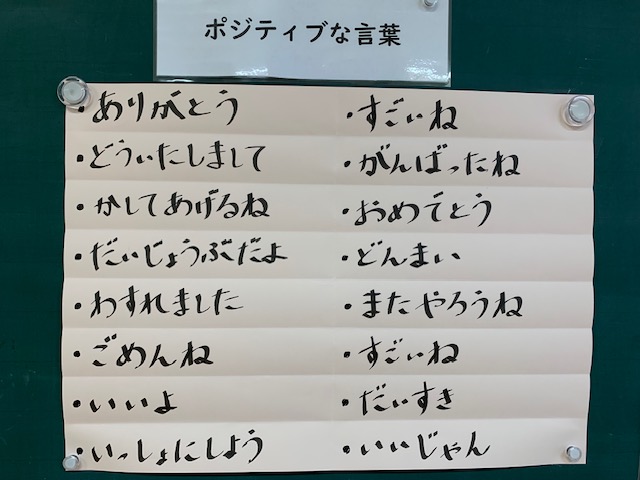 ポジティブな言葉
・ありがとう
・どういたしまして
・かしてあげるね
・だいじょうぶだよ
・わすれました
・ごめんね
・いいよ
・いっしょにしよう
・すごいね
・がんばったね
・おめでとう
・どんまい
・またやろうね
・すごいね
・だいすき
・いいじゃん